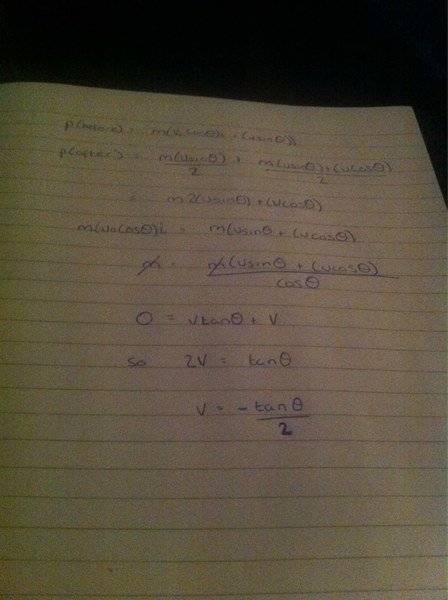 p(before) = m(v₀cosθ)i + (usinθ)j
p(after) = m(usinθ)/2 + m(usinθ)+(vcosθ)/2
= m2(usinθ)+(vcosθ)
m(v₀cosθ)i = m(usinθ + (vcosθ)
m = m(vsinθ + (vcosθ) / cosθ
0 = vtanθ + v
so 2v = tanθ
v = - tanθ/2